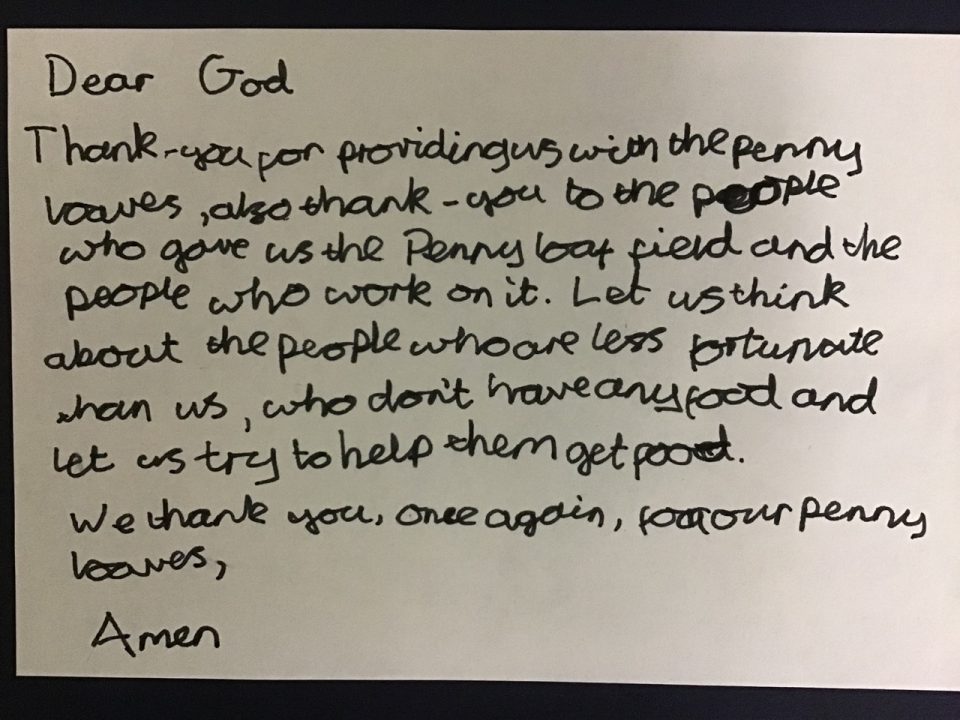 Dear God
Thank-you for providing us with the penny
loaves, also thank-you to the people
who gave us the Penny loaf field and the
people who work on it. Let us think
about the people who are less fortunate
than us, who don't have any food and
let us try to help them get food.
We thank you, once again, for our penny
loaves,
Amen